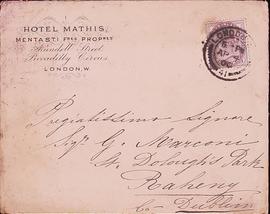 HOTEL MATHIS,
MENTASTI FRES PROPRS
Arundell Street
Piccadilly Circus
LONDON, W.
LONDON
41
Pregiatissimo Signore
Sigr G. Marconi
St. Doloughs Park
Raheny
Co. Dublin